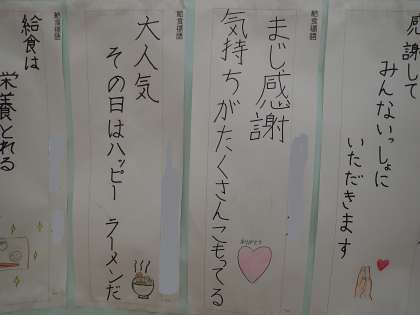 感謝して
みんないっしょに
いただきます
給食標語
まじ感謝
気持ちがたくさんこもってる
給食標語
大人気
その日はハッピー ラーメンだ
給食標語
給食は
栄養とれる